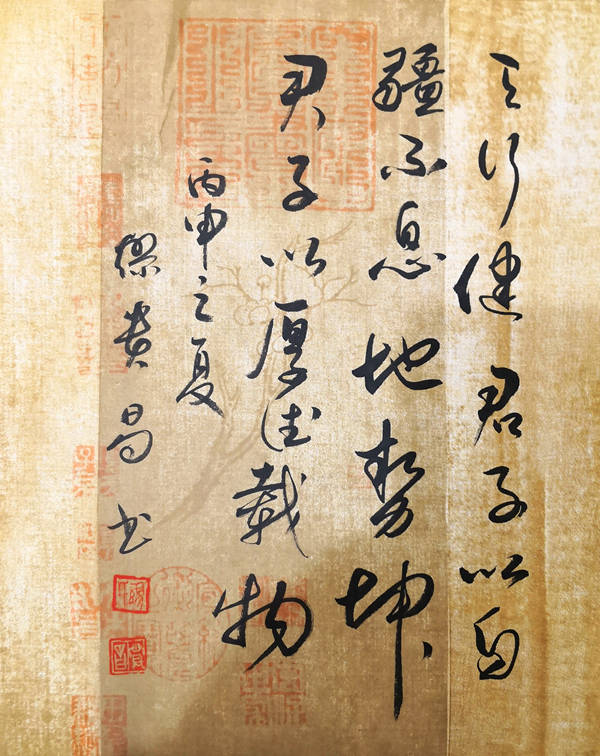 天行健君子以自
疆不息地势坤
君子以厚德载物
丙申之夏
缪贵昌书